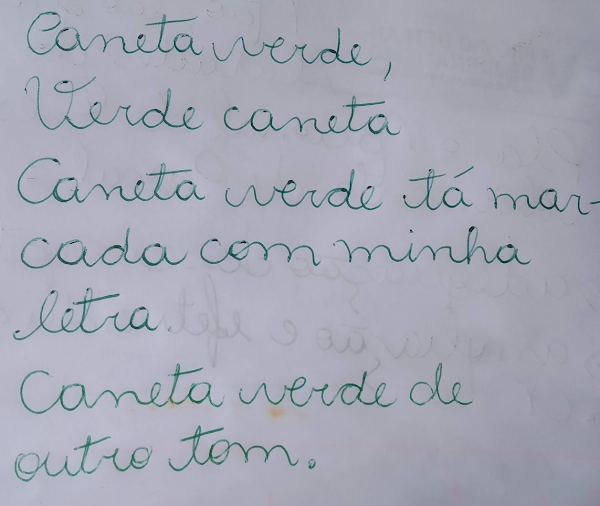 Caneta verde,
Verde caneta
Caneta verde tá mar-
cada com minha
letra.
Caneta verde de
outro tom.